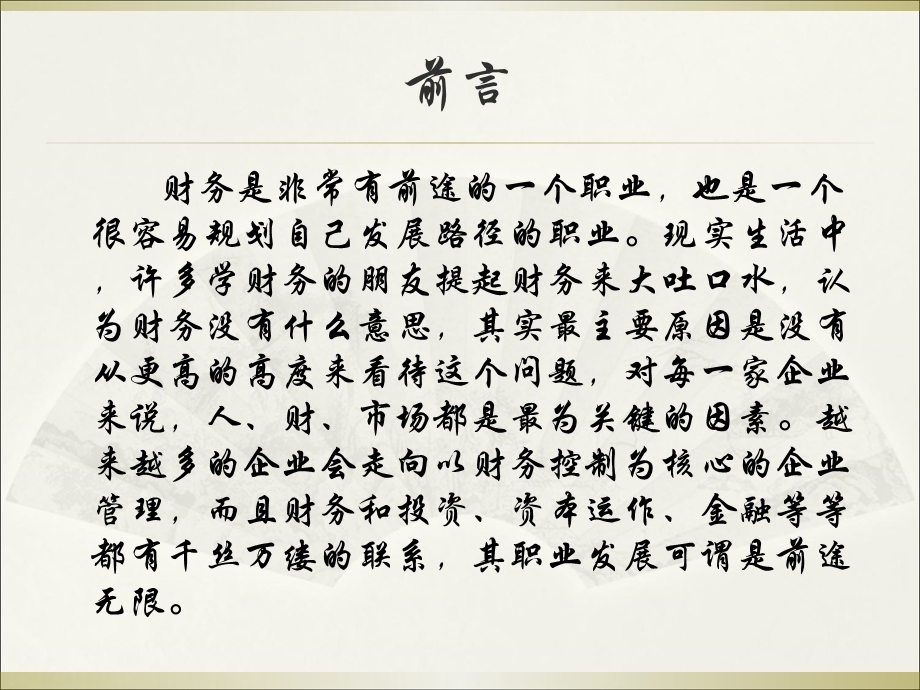 前言
财务是非常有前途的一个职业，也是一个
很容易规划自己发展路径的职业。现实生活中
，许多学财务的朋友提起财务来大吐口水，认
为财务没有什么意思，其实最主要原因是没有
从更高的高度来看待这个问题，对每一家企业
来说，人、财、市场都是最为关键的因素。越
来越多的企业会走向以财务控制为核心的企业
管理，而且财务和投资、资本运作、金融等等
都有千丝万缕的联系，其职业发展可谓是前途
无限。